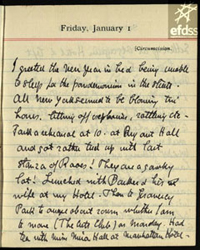 efdss
Friday, January 1
(Circumcision.)
I greeted the New Year in bed being unable
to sleep for the pandemonium in the streets.
All New York seemed to be blowing tin
horns, letting off explosives, rattling etc.
Had a rehearsal at 10. at Rey out Hall
and got rather tied up with last
stanza of Roses! They are a gawky
lot! Lunched with Barker & his
wife at my Hotel. Then to Gramercy
Park to enquire about room whether I am
to move (The Arts Club) on Monday. Had
tea with Miss Hall at Manhattan Hotel.